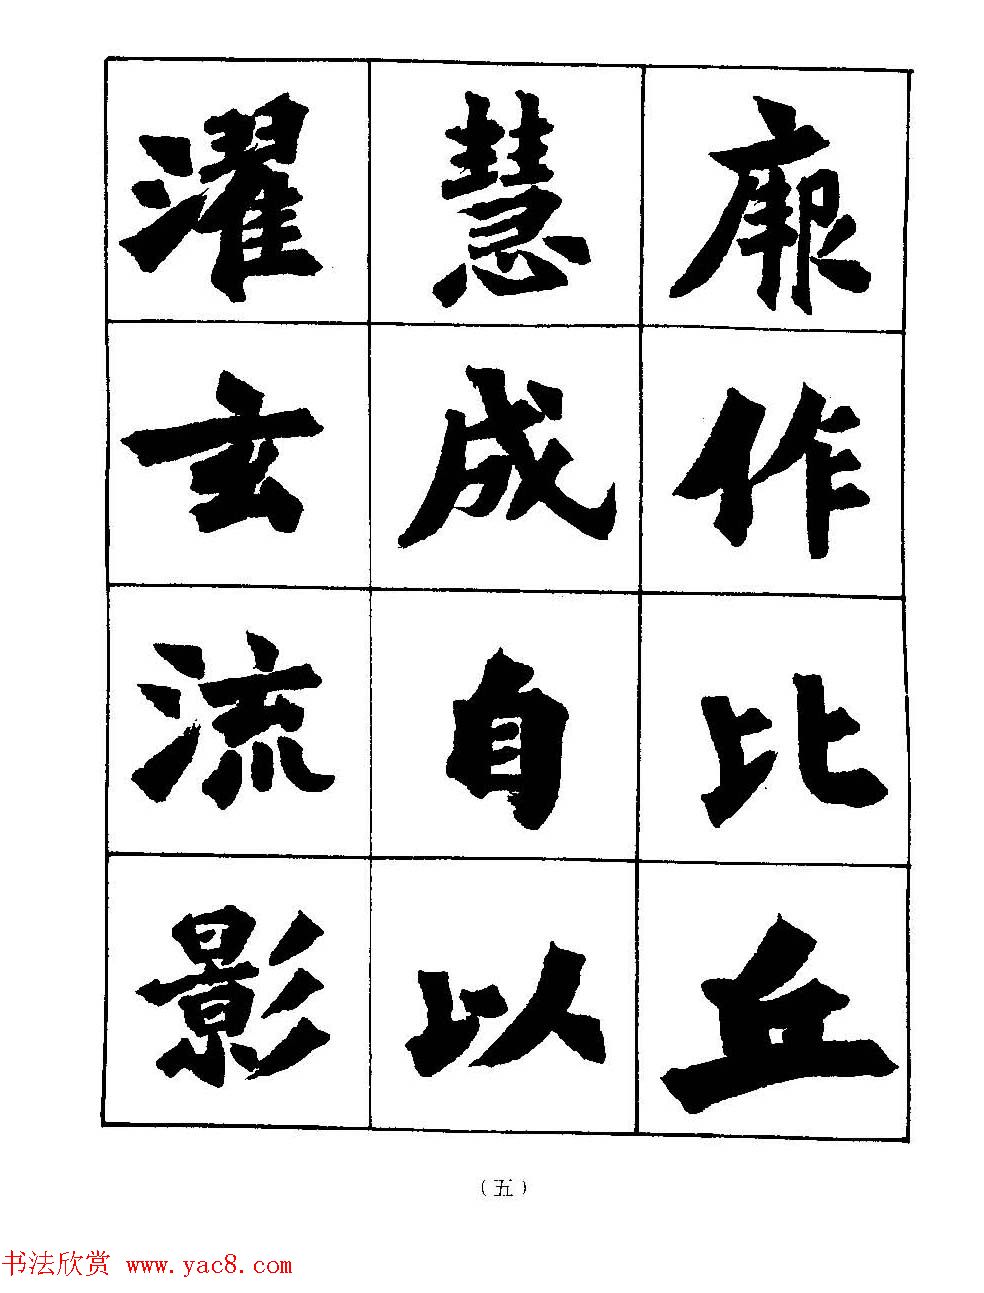 厥作比丘
慧成自以
濯玄流影
（五）
书法欣赏 www.yac8.com